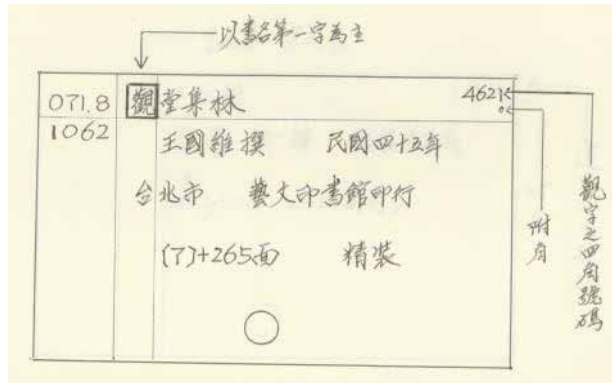 以書名第一字為主
071.8 觀堂集林 4621
1062 王國維撰 民國四十五年
台北市 藝文印書館印行
(7)+265面 精裝
附角
觀字之四角號碼